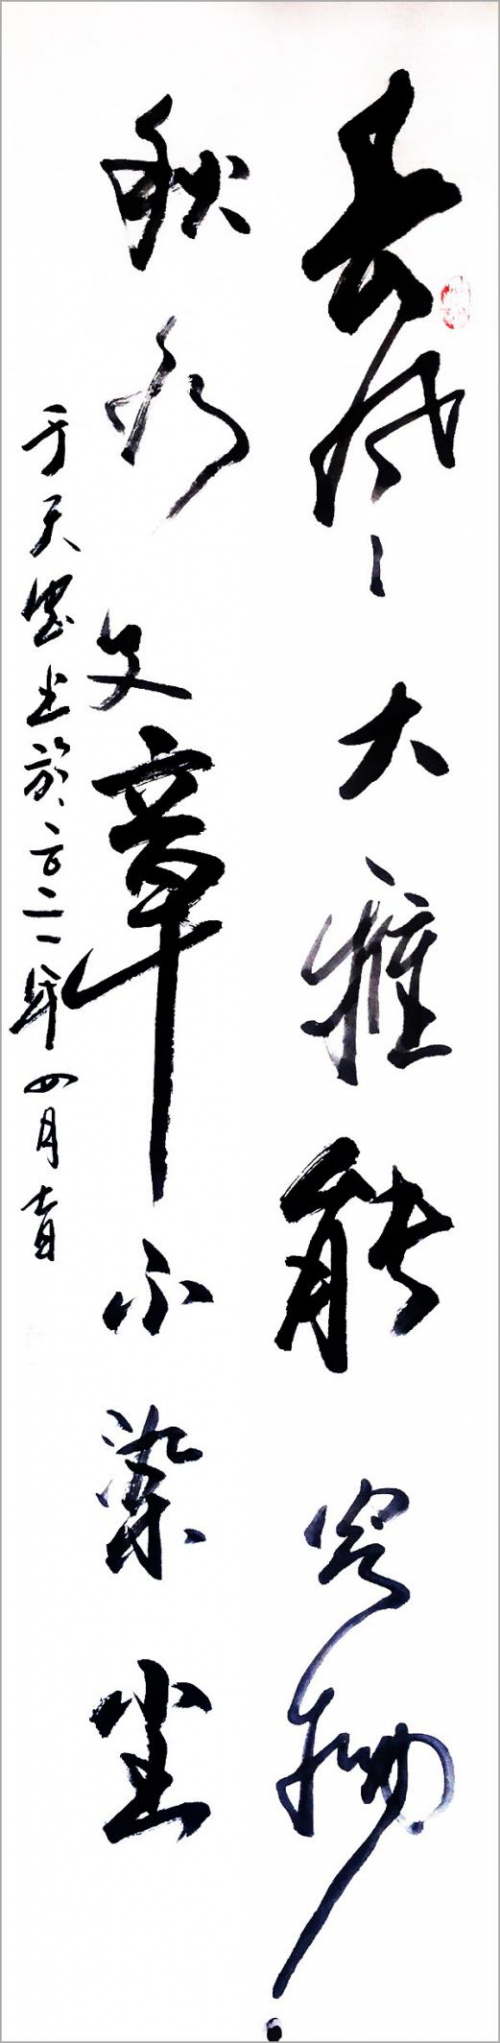 春风大雅能容物
秋水文章不染尘
于天 书于二〇二一年四月